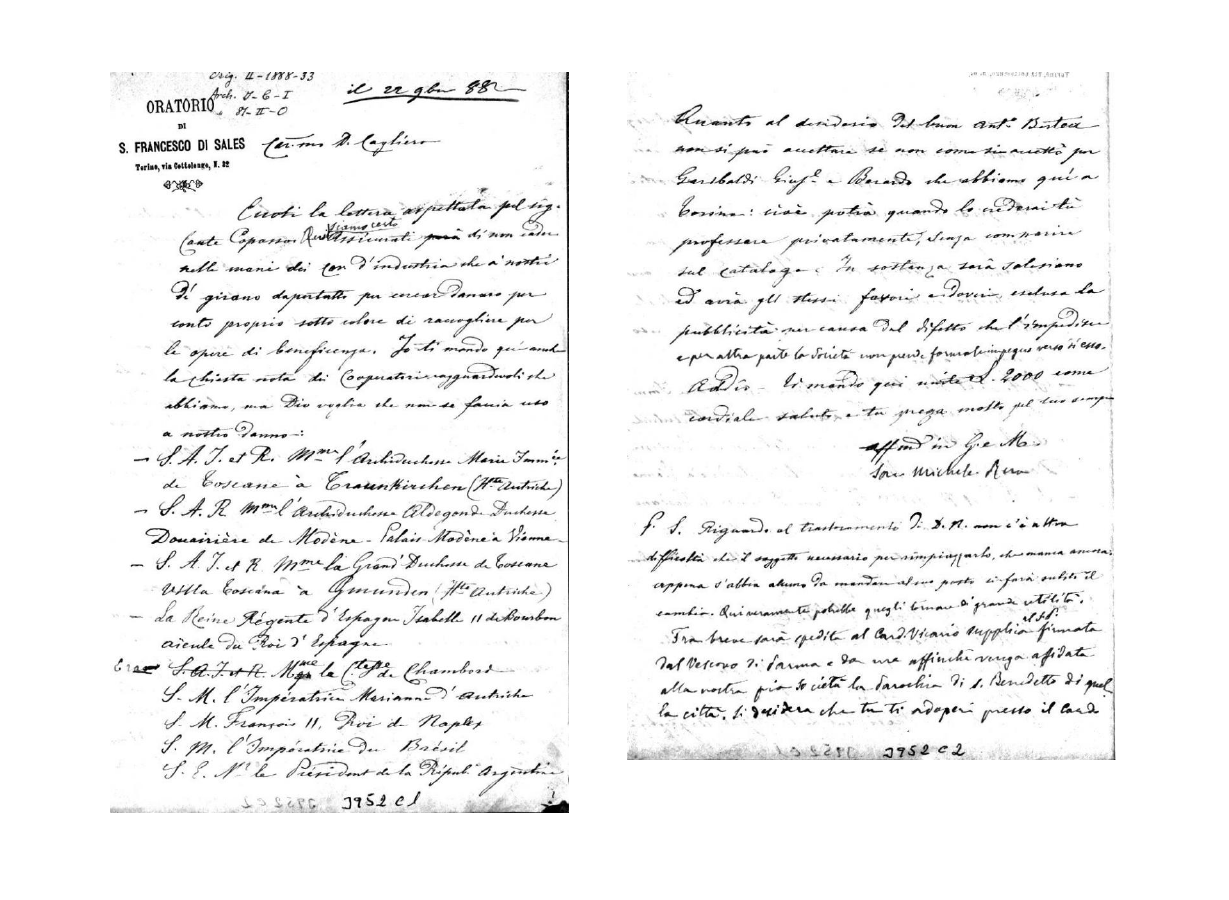 Orig. II-1888-33
Arch. J-C-I
" 81-II-O
il 22 9bre 88
ORATORIO
DI
S. FRANCESCO DI SALES
Torino, via Cottolengo, N. 32
Car.mo D. Cagliero
Eccoti la lettera aspettata pel sig.
Conte
siamo certo
assicurati però di non cader
nelle mani dei cav. d'industria che a' nostri
dì girano dapertutto per cercar danaro per
conto proprio sotto colore di raccogliere per
le opere di beneficenza. Io ti mando qui anche
la chiesta nota dei Cooperatori ragguardevoli che
abbiamo, ma Dio voglia che non se faccia uso
a nostro danno:
– S. A. I. et R. Mme l'Archiduchesse Marie
de Toscane à Traunkirchen (Hte Autriche)
– S. A. R Mme l'Archiduchesse Aldegonde Duchesse
Douairière de Modène - Palais Modène à Vienne
– S. A. I. et R Mme la Grand'Duchesse de Toscane
Toscana à Gmunden (Hte Autriche)
– La Reine Régente d'Espagne Isabelle II de Bourbon
aïeule du Roi d'Espagne
S. A. I. et R. Mme la C.tesse de Chambord
S. M. l'Impératrice Marianne d'Autriche
S. M. François II, Roi de Naples
S. M. l'Impératrice du Brésil
S. E. Mr le Président de la Républ. Argentine
J952 C1
Quanto al desiderio del buon Ant.o
non si può accettare se non come si accettò per
Garibaldi Gius.e e Berardo che abbiamo qui a
Torino: cioè, potrà quando lo crederai tu
professare privatamente, senza comparire
sul catalogo. In sostanza sarà salesiano
ed avrà gli stessi favori e doveri, esclusa la
pubblicità per causa del difetto che l'impedisce
e per altra parte la Società non prende formale impegno verso di esso.
Addio - Ti mando qui unite L. 2000 come
cordiale saluto e tu prega molto pel tuo sempre
aff.mo in G. e M.
Sac. Michele Rua
P. S. Riguardo al traslocamento di D. R. non c'è altra
difficoltà che il soggetto necessario per rimpiazzarlo, che manca ancora:
appena s'abbia alcuno da mandare al suo posto si farà subito il
cambio. Qui veramente potrebbe quegli tornare di grande utilità.
Fra breve sarà spedita al Card. Vicario supplica firmata
dal Vescovo di Parma e da me affinchè venga affidata
alla nostra pia Società la Parochia di S. Benedetto di quel
la città. Si desidera che tu ti adoperi presso il Card
J952 C2